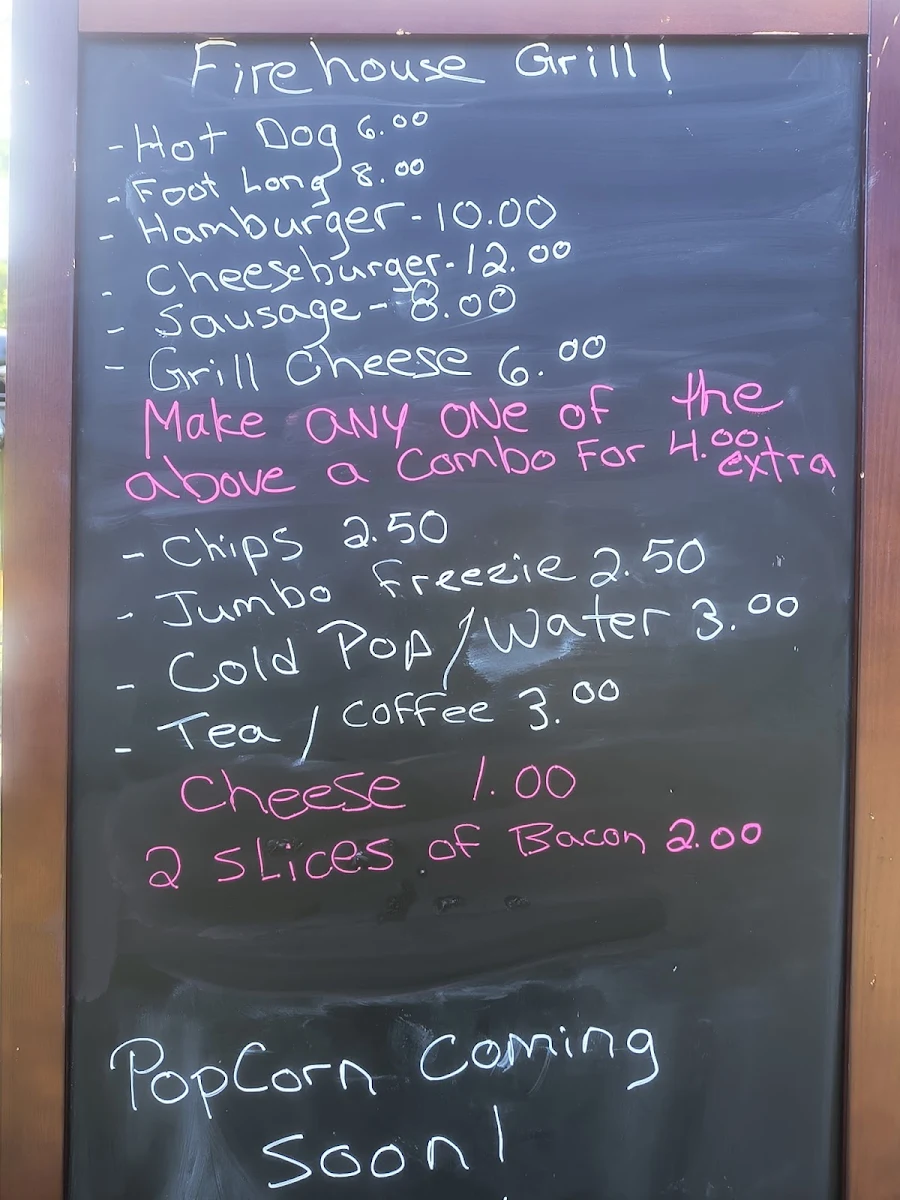 Firehouse Grill!
- Hot Dog 6.00
- Foot Long 8.00
- Hamburger - 10.00
- Cheeseburger - 12.00
- Sausage - 8.00
- Grill Cheese 6.00
Make ANY ONE of the
above a Combo For 4.00 extra
- Chips 2.50
- Jumbo Freezie 2.50
- Cold Pop / Water 3.00
- Tea / Coffee 3.00
Cheese 1.00
2 SLices of Bacon 2.00
PopCorn Coming
Soon!